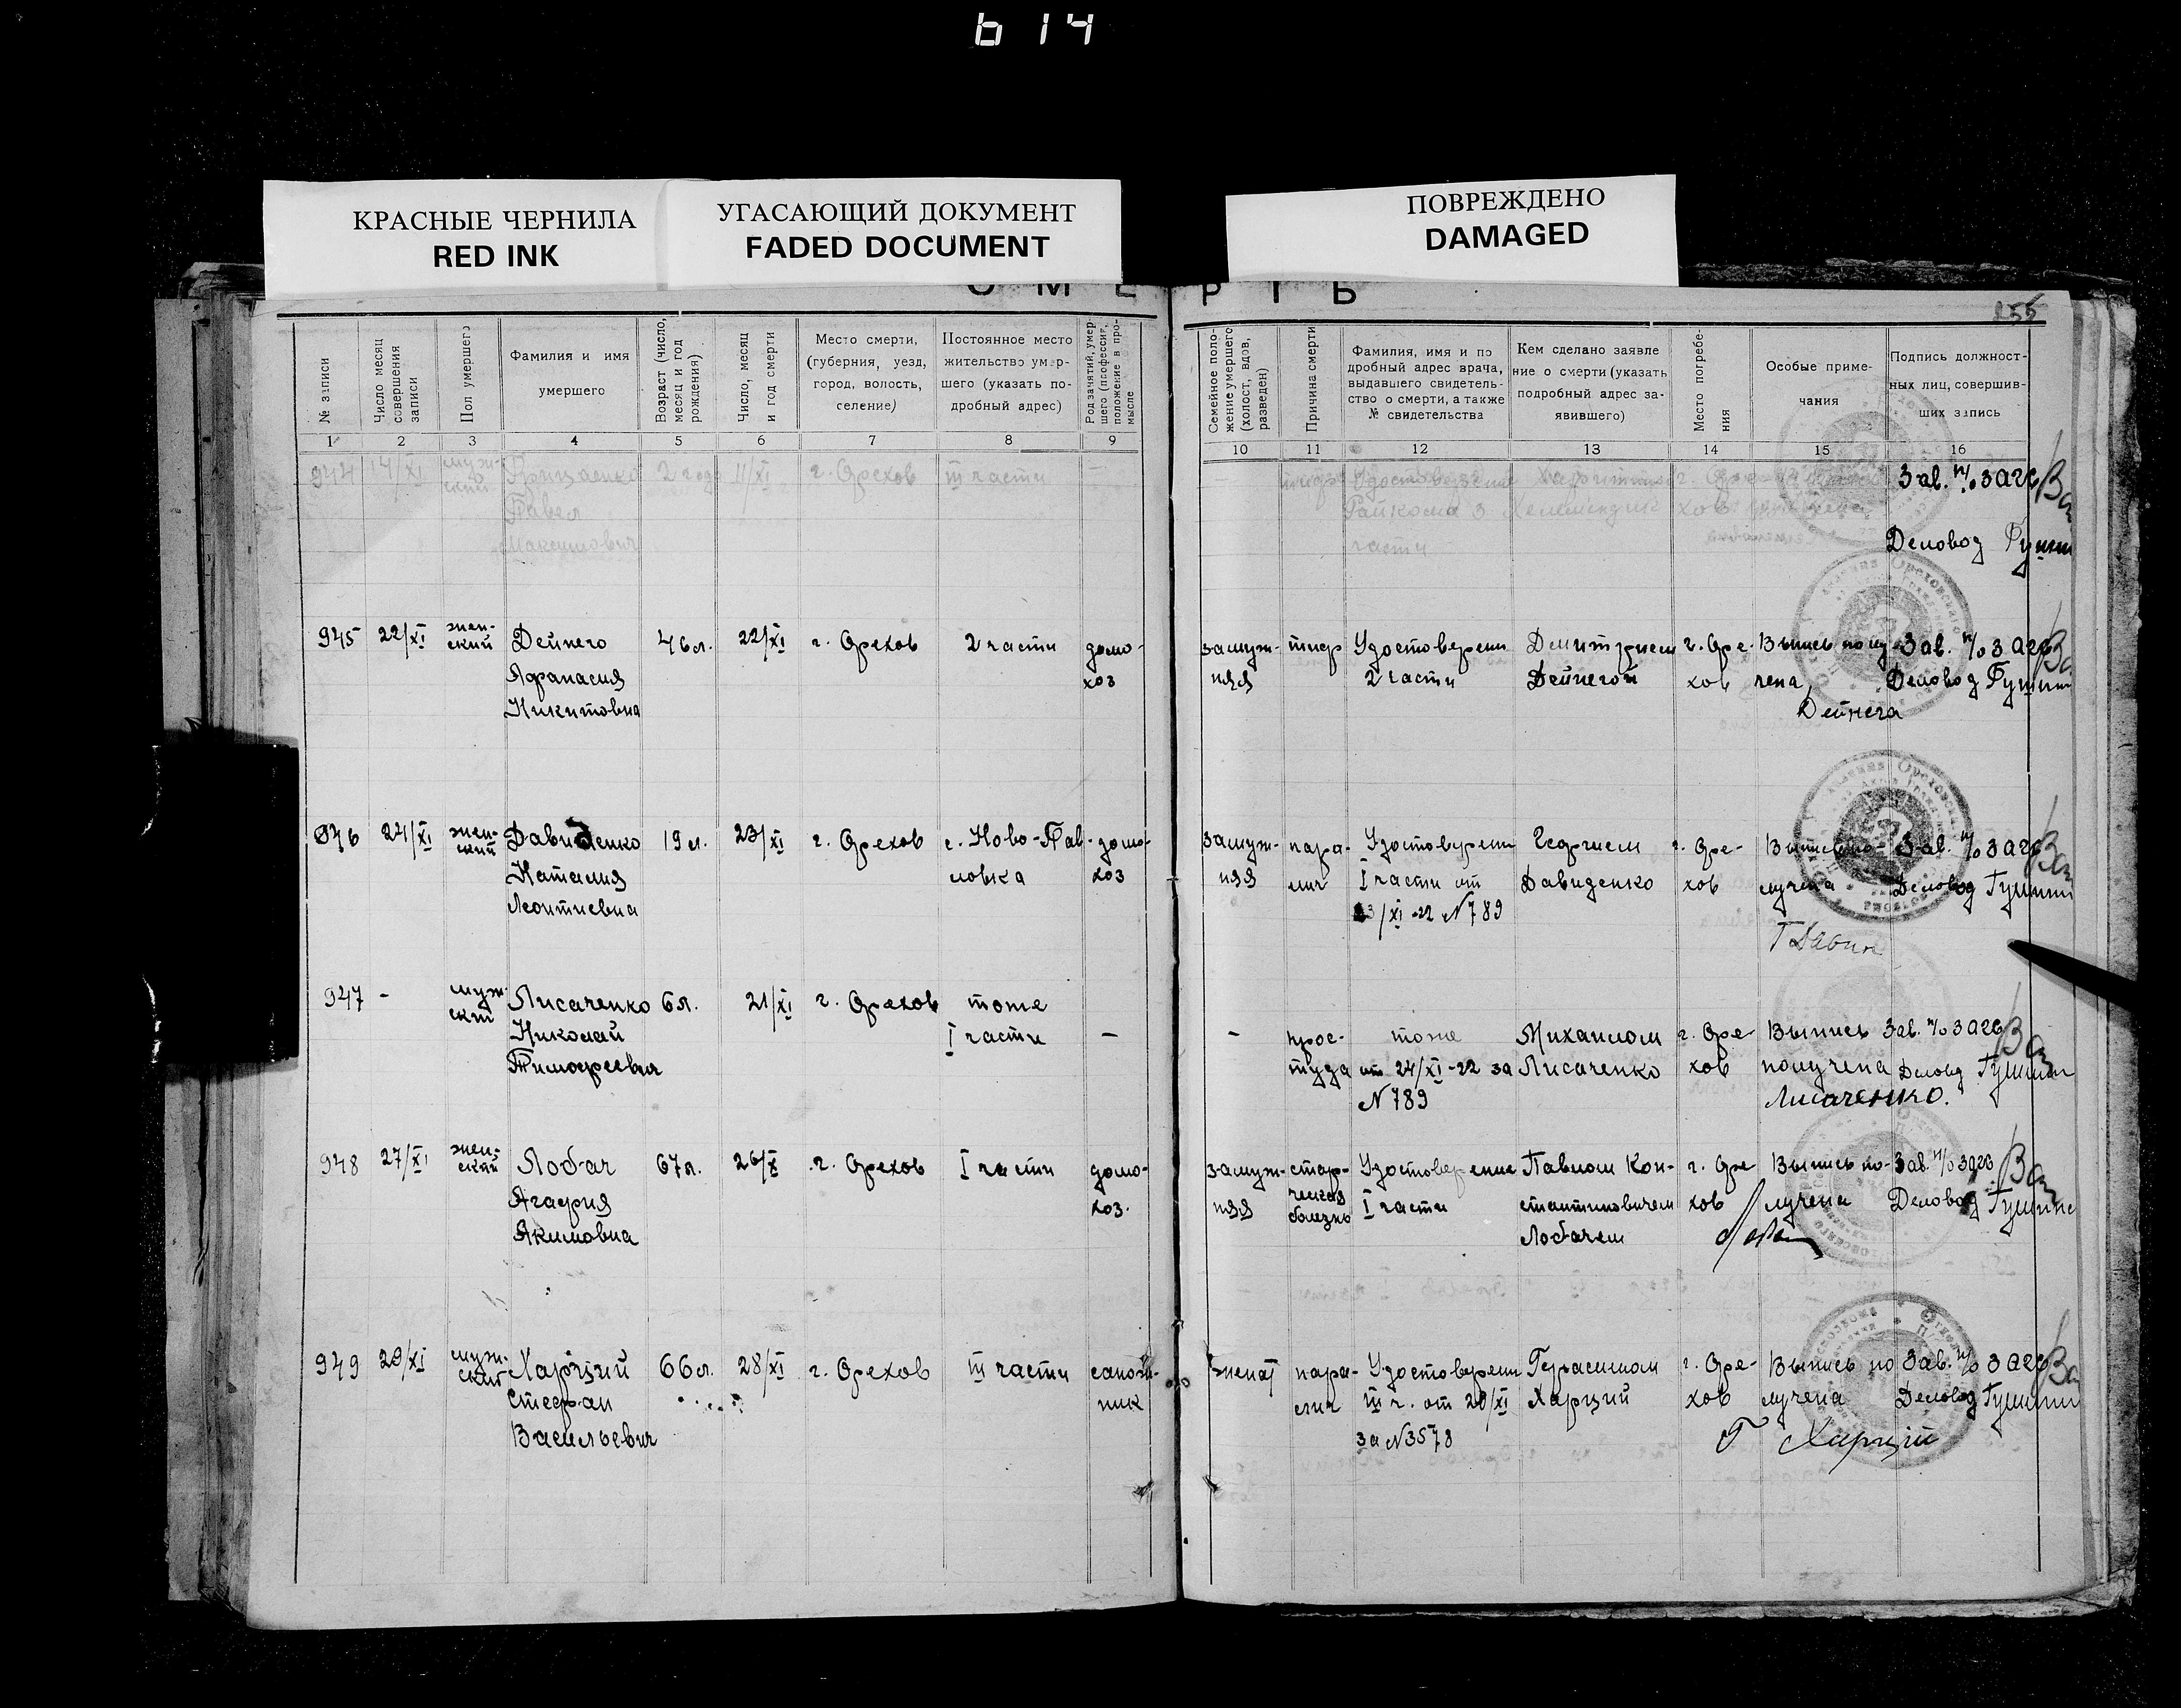 614
КРАСНЫЕ ЧЕРНИЛА
RED INK
УГАСАЮЩИЙ ДОКУМЕНТ
FADED DOCUMENT
ПОВРЕЖДЕНО
DAMAGED
СМЕРТЬ
255
№ записи
Число месяц совершения записи
Пол умершего
Фамилия и имя умершего
Возраст (число, месяц и год рождения)
Число, месяц и год смерти
Место смерти, (губерния, уезд, город, волость, селение)
Постоянное место жительство умершего (указать подробный адрес)
Род занятий, умершего (профессия, положение в промысле
Семейное положение умершего (холост, вдов, разведен)
Причина смерти
Фамилия, имя и подробный адрес врача, выдавшего свидетельство о смерти, а также № свидетельства
Кем сделано заявление о смерти (указать подробный адрес заявившего)
Место погребения
Особые примечания
Подпись должностных лиц, совершивших запись
1 2 3 4 5 6 7 8 9 10 11 12 13 14 15 16
944 14/XI муж- 2 года 11/XI г. Орехов III части — Удостоверение г. Оре Зав. п/о загс
ский Павел Райкома 3 хов
Максимович части Деловод
945 22/XI жен- Дейнего 46 л. 22/XI г. Орехов 2 части домо- замуж- тиф Удостоверени Дмитрием г. Оре- Выпись полу- Зав. п/о загс
ский Афанасия хоз няя 2 части Дейнегой хов чена, Деловод
Никитовна Дейнега
946 24/XI жен- Давиденко 19 л. 23/XI г. Орехов с. Ново-Пав- домо- замуж- пара- Удостоверени Георгием г. Оре- Выпись по- Зав. п/о загс
ский Наталия ловка хоз няя лич I части от Давиденко хов лучена Деловод
Леонтиевна 23/XI-22 N 789
947 - муж- Лисаченко 6 л. 21/XI г. Орехов тоже - прос- тоже Михаилом г. Оре Выпись Зав. п/о загс
ский Николай I части — туда от 24/XI-22 за Лисаченко хов получена Деловод
Тимофеевич N 789 Лисаченко.
948 27/XI жен- Лобач 67 л. 26/X г. Орехов I части домо- замуж- стар- Удостоверение Павлом Кон- г. Оре Выпись по- Зав. п/о загс
ский Агафия хоз. няя ческая болезнь I части стантиновичем хов лучена Деловод
Акимовна Лобачем
949 29/XI муж- Харций 66 л. 28/XI г. Орехов III части сапож- женат пара- Удостоверени Герасимом г. Оре- Выпись по Зав. п/о загс
ский Стефан ник лич III ч. от 29/XI Харций хов лучена Деловод
Васильевич за N 3578 Г Харций